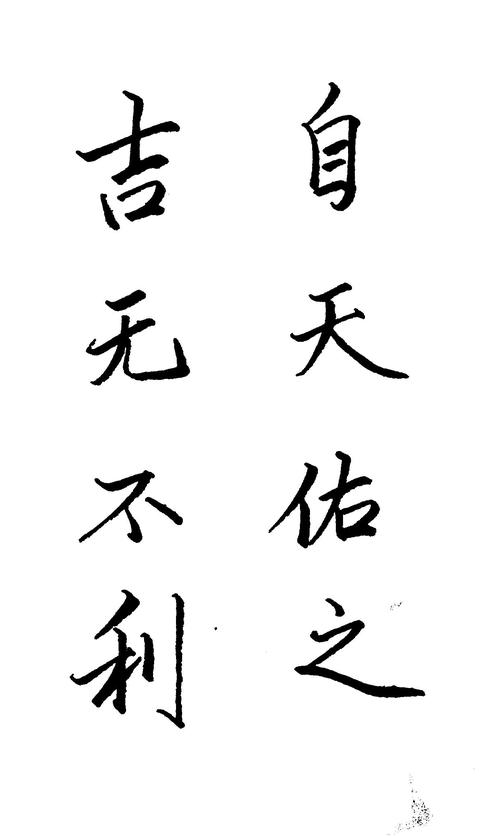 自天佑之
吉无不利